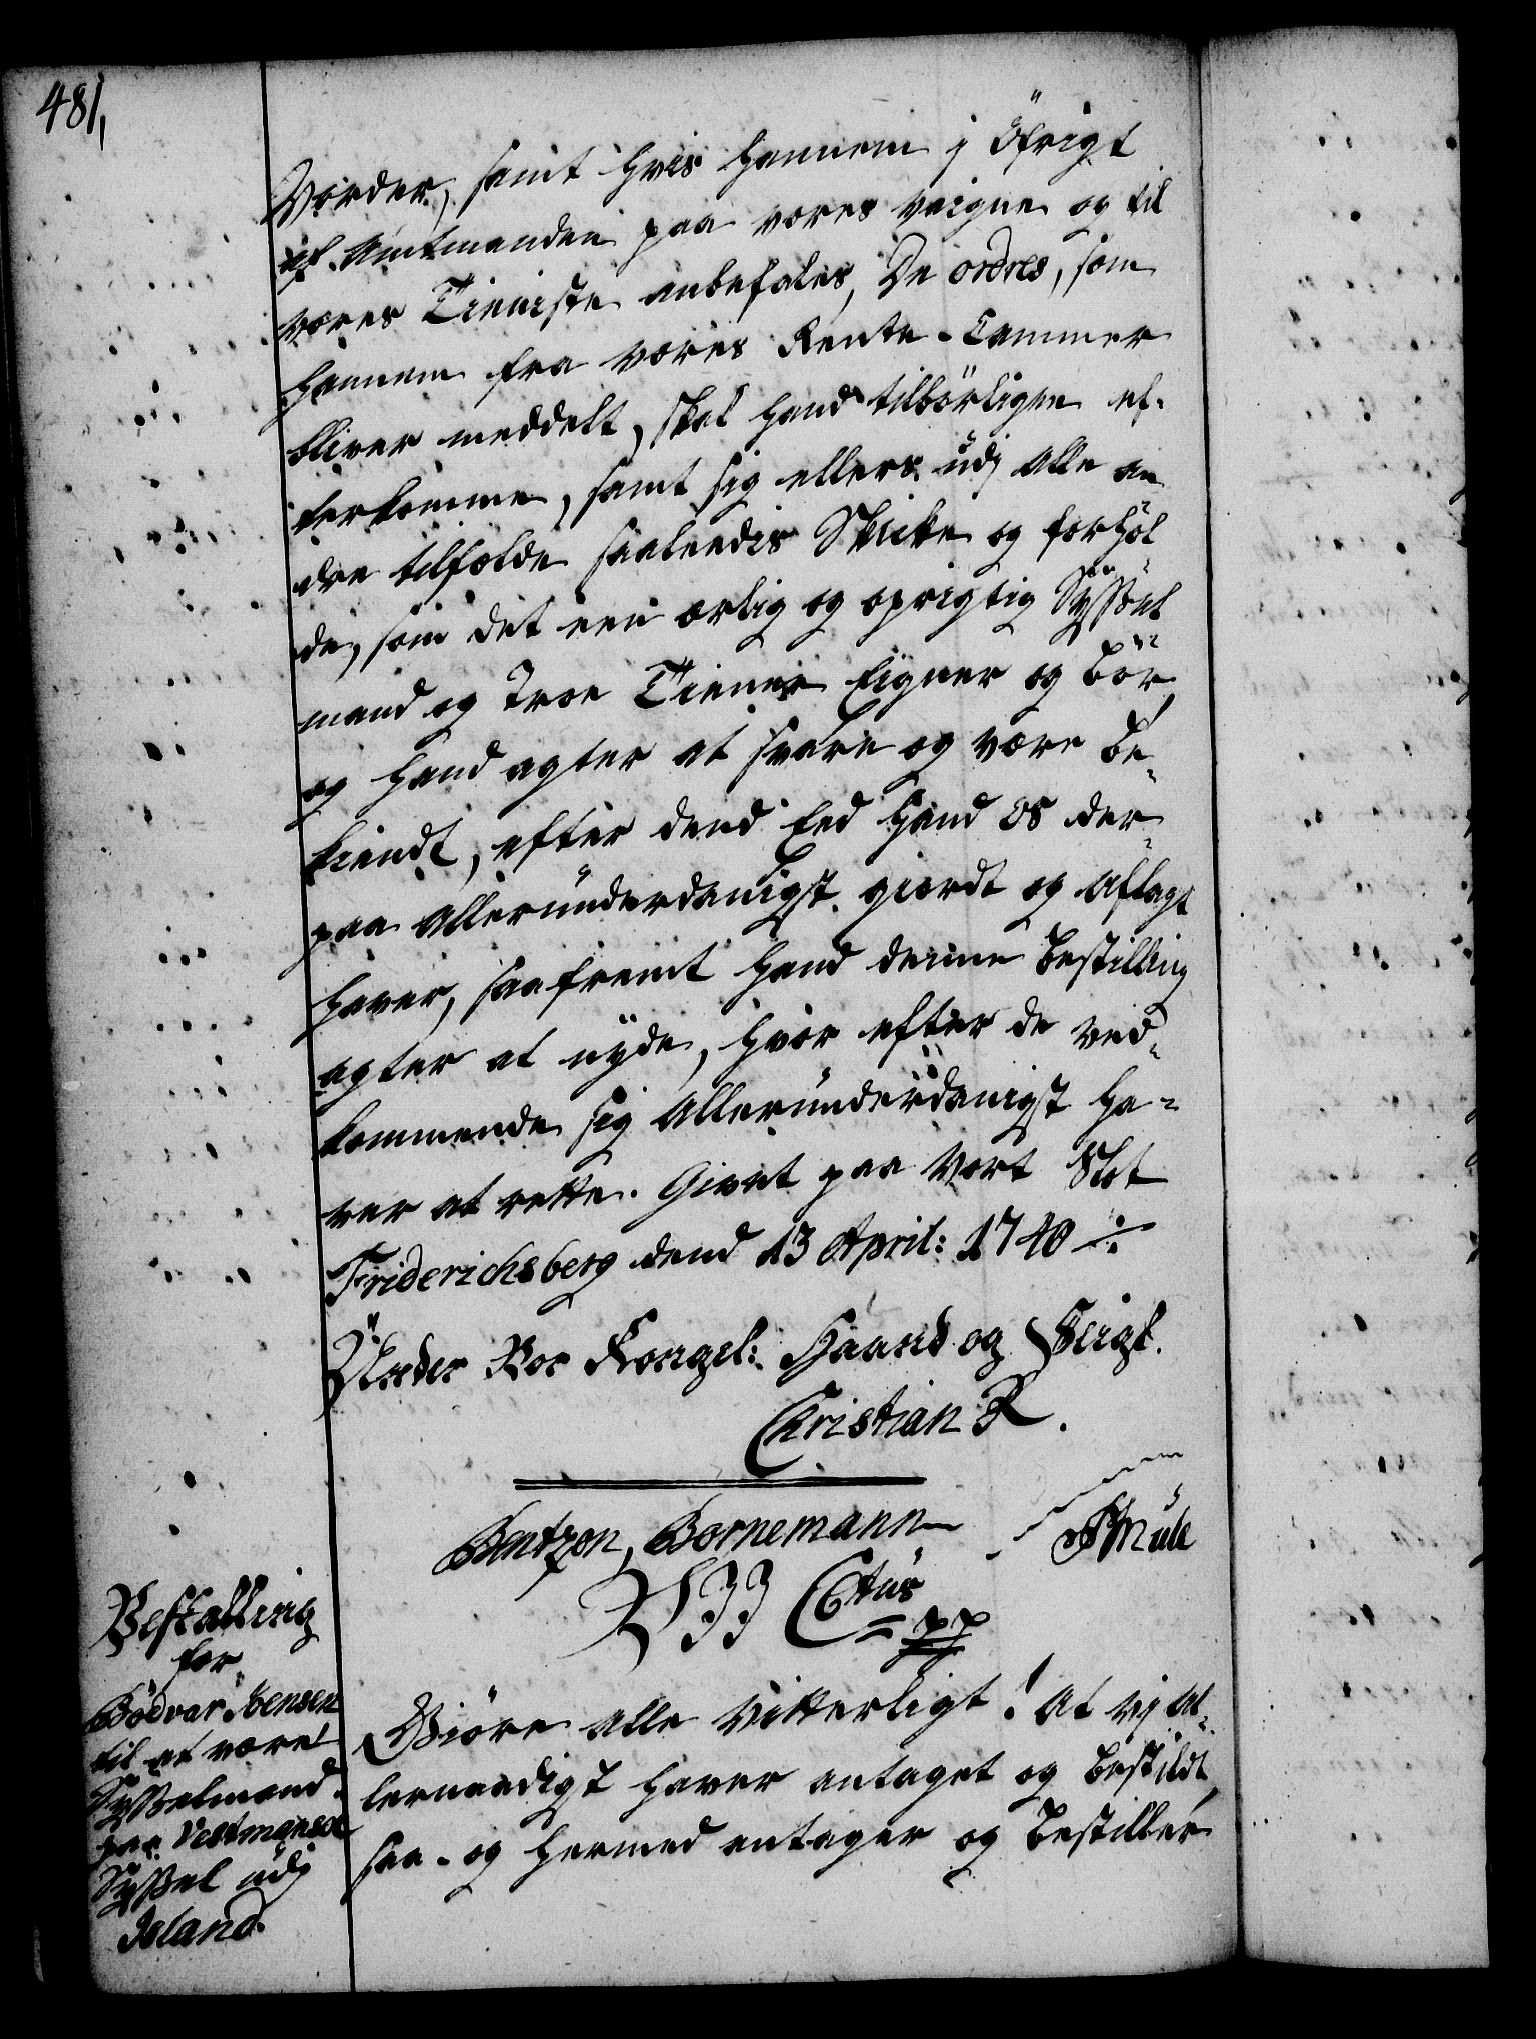 481,
Vorder, samt hvis hannem j öfrigt
af Amtmanden paa vores veigne og til
vores Tieniste anbefales, De ordres, som
hannem fra vores Rente-Cammer
bliver meddelt, skal hand tilbörligen ef-
terkomme, samt sig ellers udj alle an
dre tilfælde saaledis Skicke og forhol
de, som det een ærlig og oprigtig Syssel
mand og troe Tiener Eigner og bör
og hand agter at svare og være be-
kiendt, efter dend Eed hand os der-
paa allerunderdanigst giordt og aflagt
haver, saafremt hand denne bestilling
agter at nyde, hvor efter de ved-
kommende sig allerunderdanigst ha-
ver at rette. Givet paa Vort Slot
Friderichsberg dend 13 April: 1740
Under Vor Kongel: Haand og Seigl.
Christian R.
Bentzon, Bornemann
FMule
VII Ctus
pp
Bestalling
for
Bödvar Joensen
til at være
Sysselmand
paa Vestmansöe
Syssel udj
Island.
Giöre alle Vitterligt! At vj al-
lernaadigst haver antaget og bestildt
saa- og hermed antager og bestiller